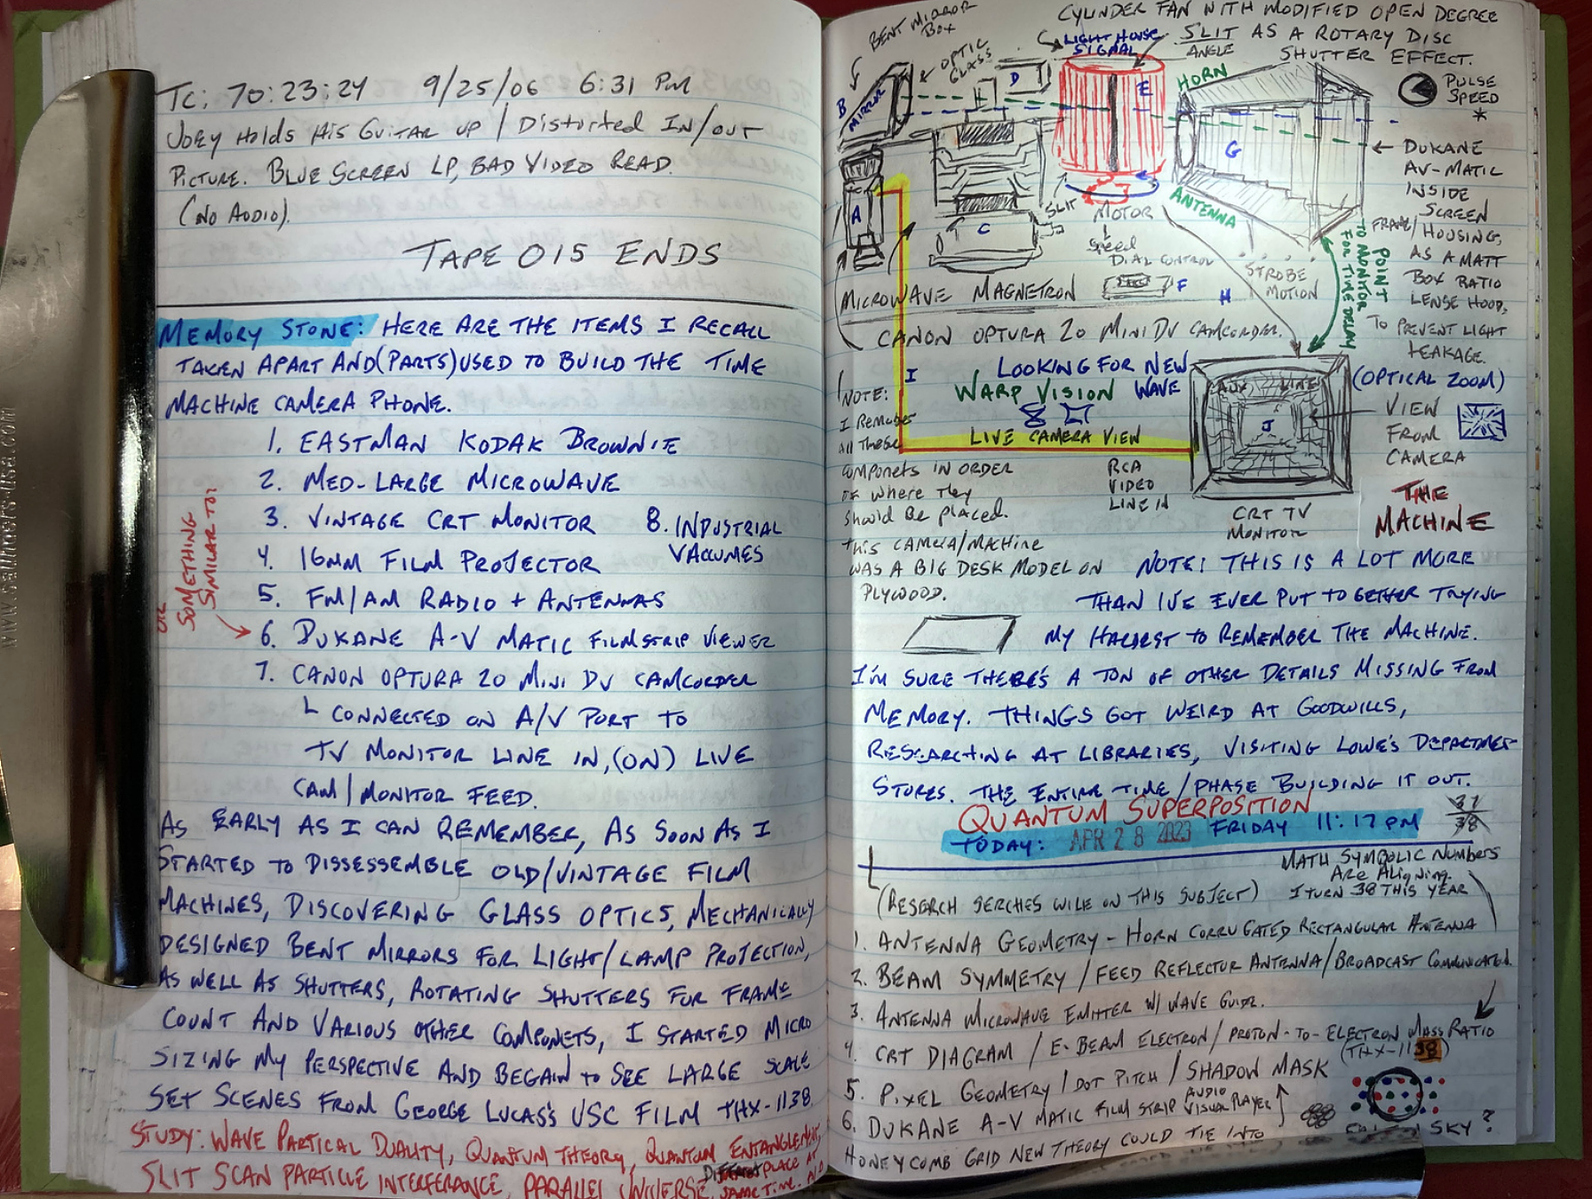 TC: 70:23:24 9/25/06 6:31 PM
JOEY HOLDS HIS GUITAR UP / DISTORTED IN/OUT
PICTURE. BLUE SCREEN LP, BAD VIDEO READ.
(NO AUDIO).
TAPE 015 ENDS
MEMORY STONE: HERE ARE THE ITEMS I RECALL
TAKEN APART AND (PARTS) USED TO BUILD THE TIME
MACHINE CAMERA PHONE.
1. EASTMAN KODAK BROWNIE
2. MED-LARGE MICROWAVE
3. VINTAGE CRT MONITOR
4. 16MM FILM PROJECTOR
5. FM/AM RADIO + ANTENNAS
6. DUKANE A-V MATIC FILMSTRIP VIEWER
7. CANON OPTURA 20 MINI DV CAMCORDER
8. INDUSTRIAL
VACUMES
OR
SOMETHING
SIMILAR TO:
└ CONNECTED ON A/V PORT TO
TV MONITOR LINE IN, (ON) LIVE
CAM/MONITOR FEED.
AS EARLY AS I CAN REMEMBER, AS SOON AS I
STARTED TO DISSESSEMBLE OLD/VINTAGE FILM
MACHINES, DISCOVERING GLASS OPTICS, MECHANICALLY
DESIGNED BENT MIRRORS FOR LIGHT/LAMP PROTECTION,
AS WELL AS SHUTTERS, ROTATING SHUTTERS FOR FRAME
COUNT AND VARIOUS OTHER COMPONETS, I STARTED MICRO
SIZING MY PERSPECTIVE AND BEGAIN TO SEE LARGE SCALE
SET SCENES FROM GEORGE LUCAS'S USC FILM THX-1138.
STUDY: WAVE PARTICAL DUALITY, QUANTUM THEORY, QUANTUM ENTANGLEMENT,
SLIT SCAN PARTICLE INTERFERANCE, PARALLEL UNIVERSE. PLACE AT
SAME TIME.
www.saunders-usa.com
BENT MIRROR
BOX
OPTIC
GLASS
LIGHT HOUSE
SIGNAL
CYLINDER FAN WITH MODIFIED OPEN DEGREE
SLIT AS A ROTARY DISC
ANGLE
SHUTTER EFFECT.
B
MIRROR
D
E
HORN
PULSE
SPEED
*
G
A
C
SLIT
MOTOR
ANTENNA
SPEED
DIAL CONTROL
F
H
STROBE
MOTION
POINT
TO MONITOR
FOR TIME DELAY
DUKANE
AV-MATIC
INSIDE
SCREEN
FRAME/HOUSING,
AS A MATT
BOX RATIO
LENSE HOOD,
TO PREVENT LIGHT
LEAKAGE.
MICROWAVE MAGNETRON
CANON OPTURA 20 MINI DV CAMCORDER.
I
LOOKING FOR NEW
WARP VISION WAVE
LIVE CAMERA VIEW
RCA
VIDEO
LINE IN
AUX LINE
J
CRT TV
MONITOR
(OPTICAL ZOOM)
VIEW
FROM
CAMERA
THE
MACHINE
NOTE:
I REMEMBER
ALL THESE
COMPONETS IN ORDER
OF WHERE THEY
SHOULD BE PLACED.
THIS CAMERA/MACHINE
WAS A BIG DESK MODEL ON
PLYWOOD.
NOTE: THIS IS A LOT MORE
THAN I'VE EVER PUT TO GETHER TRYING
MY HARDEST TO REMEMBER THE MACHINE.
I'M SURE THERE'S A TON OF OTHER DETAILS MISSING FROM
MEMORY. THINGS GOT WEIRD AT GOODWILLS,
RESEARCHING AT LIBRARIES, VISITING LOWE'S DEPARTMENT
STORES. THE ENTIRE TIME/PHASE BUILDING IT OUT.
QUANTUM SUPERPOSITION
TODAY: APR 28 2023 FRIDAY 11:17 PM
37
38
MATH SYMBOLIC NUMBERS
ARE ALIGNING.
I TURN 38 THIS YEAR
(RESERCH SERCHES WILL ON THIS SUBJECT)
1. ANTENNA GEOMETRY - HORN CORRUGATED RECTANGULAR ANTENNA
2. BEAM SYMMETRY / FEED REFLECTOR ANTENNA / BROADCAST COMMUNICATED.
3. ANTENNA MICROWAVE EMITTER W/ WAVE GUIDE.
4. CRT DIAGRAM / E-BEAM ELECTRON / PROTON-TO-ELECTRON MASS RATIO
(THX-1138)
5. PIXEL GEOMETRY / DOT PITCH / SHADOW MASK
6. DUKANE A-V MATIC FILM STRIP AUDIO VISUAL PLAYER
SKY?
HONEYCOMB GRID NEW THEORY COULD TIE INTO